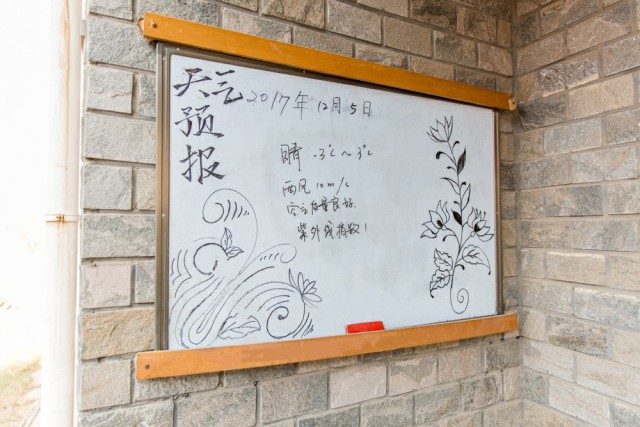 天气
预
报
2017年 12月 5日
晴 -3℃~3℃
西风 12m/s
空气质量良好
紫外线指数!